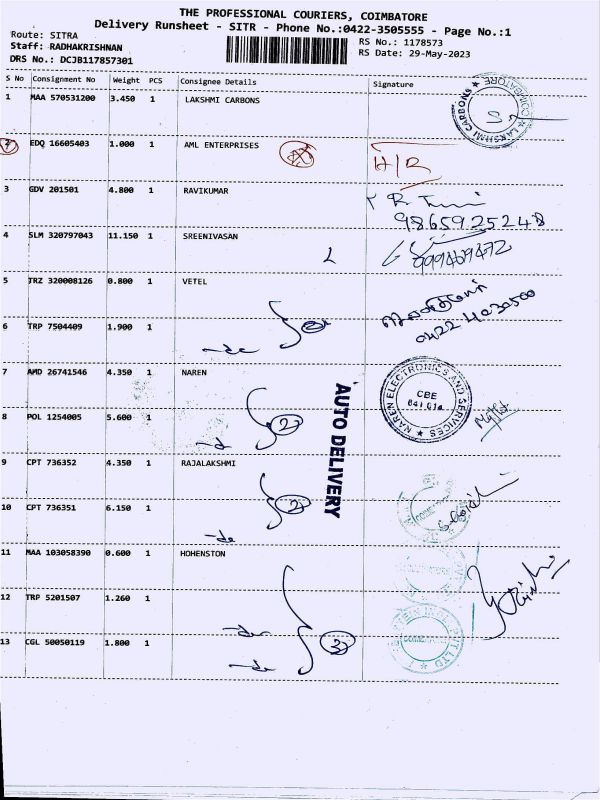 THE PROFESSIONAL COURIERS, COIMBATORE
Delivery Runsheet - SITR - Phone No.:0422-3505555 - Page No.:1
Route: SITRA
RS No.: 1178573
Staff: RADHAKRISHNAN
RS Date: 29-May-2023
DRS No.: DCJB117857301
S No Consignment No Weight PCS Consignee Details Signature
1 MAA 570531200 3.450 1 LAKSHMI CARBONS
LAKSHMI CARBONS ★ COIMBATORE ★
2 EDQ 16605403 1.000 1 AML ENTERPRISES
H/R
3 GDV 201501 4.800 1 RAVIKUMAR
9865925248
4 SLM 320797043 11.150 1 SREENIVASAN
5 TRZ 320008126 0.800 1 VETEL
0422 4030500
6 TRP 7504409 1.900 1
2
7 AMD 26741546 4.350 1 NAREN
NAREN ELECTRONICS AND SERVICES ★
CBE
641 014
AUTO DELIVERY
8 POL 1254005 5.600 1
2
9 CPT 736352 4.350 1 RAJALAKSHMI
10 CPT 736351 6.150 1
2
11 MAA 103058390 0.600 1 HOHENSTON
12 TRP 5201507 1.260 1
13 CGL 50050119 1.800 1
3